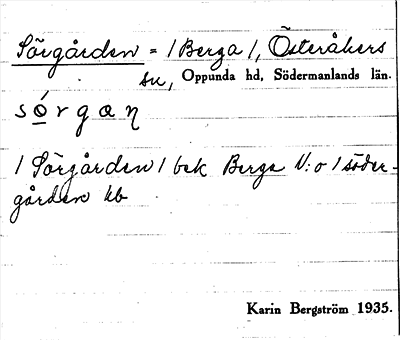 Sörgården = /Berga/, Österåkers
sn, Oppunda hd, Södermanlands län.
só̲rgaɳ
/Sörgården/ bek Berga V:o/söder-
gården kb
Karin Bergström 1935.